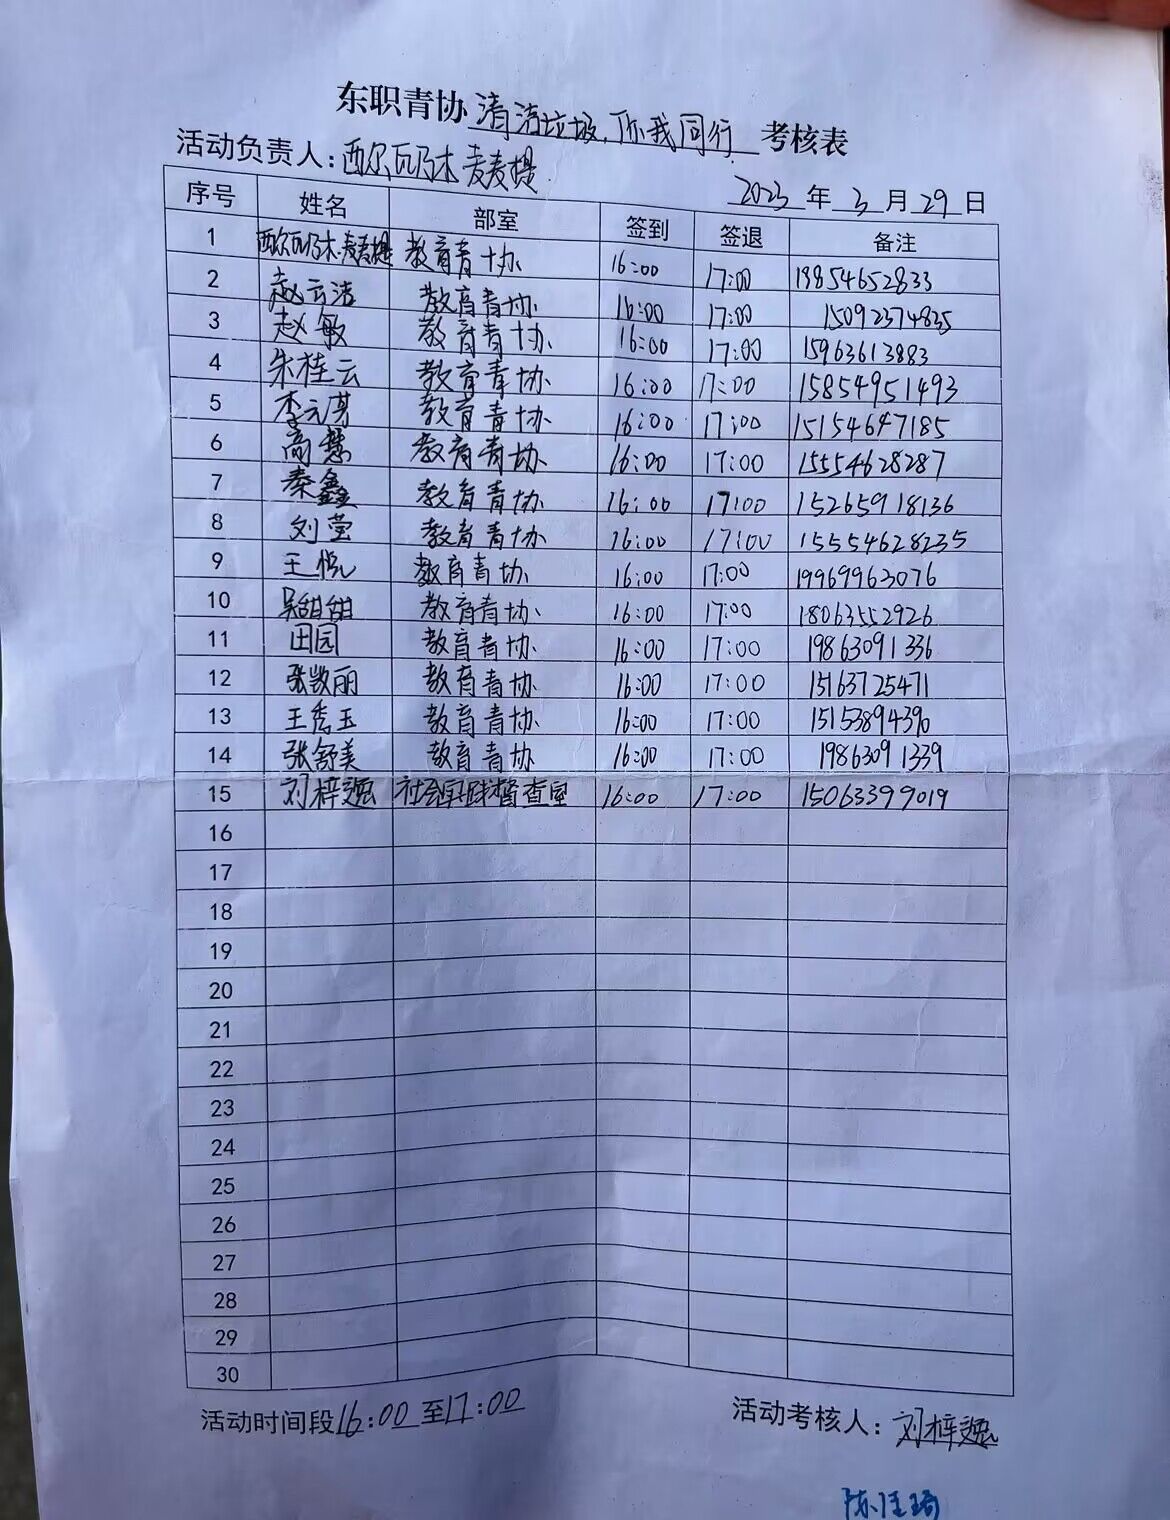 东职青协清洁垃圾,你我同行 考核表
活动负责人:西尔瓦乃木·麦麦提
2023 年 3 月 29 日
序号 姓名 部室 签到 签退 备注
1 西尔瓦乃木·麦麦提 教育青协 16:00 17:00 19854652833
2 赵云洁 教育青协 16:00 17:00 15092374835
3 赵敏 教育青协 16:00 17:00 15963613883
4 朱桂云 教育青协 16:00 17:00 15854951493
5 李云 教育青协 16:00 17:00 15154647185
6 高慧 教育青协 16:00 17:00 15554628287
7 秦鑫 教育青协 16:00 17:00 15265918136
8 刘莹 教育青协 16:00 17:00 15554628235
9 王悦 教育青协 16:00 17:00 19969963076
10 吴甜甜 教育青协 16:00 17:00 18063552926
11 田园 教育青协 16:00 17:00 19863091336
12 张敬丽 教育青协 16:00 17:00 15163725471
13 王秀玉 教育青协 16:00 17:00 15153894390
14 张舒美 教育青协 16:00 17:00 19863091339
15 刘梓逸 社会实践督查室 16:00 17:00 15063399019
16
17
18
19
20
21
22
23
24
25
26
27
28
29
30
活动时间段16:00至17:00 活动考核人:刘梓逸
陈佳琦